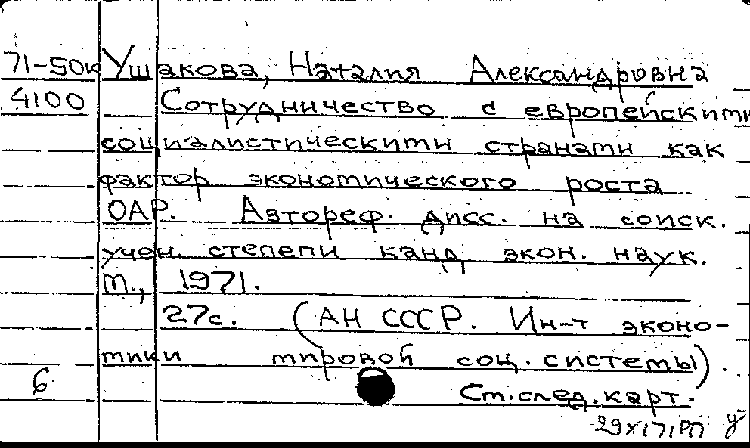 71-50к Ушакова, Наталия Александровна
4100 Сотрудничество с европейскими
социалистическими странами как
фактор экономического роста
ОАР. Автореф. дисс. на соиск.
учен. степени канд. экон. наук.
М., 1971.
27с. (АН СССР. Ин-т эконо-
мики мировой соц. системы).
6 См. след. карт.